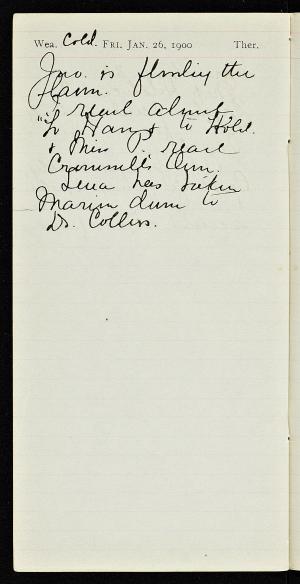 Wea. Cold. FRI. JAN. 26, 1900 Ther.
Jno. is flooding the
Lawn.
I read aloud
"To Have & to Hold.
& Miss P. read
Cromwell's
Lena has taken
Marion down to
Dr. Collins.